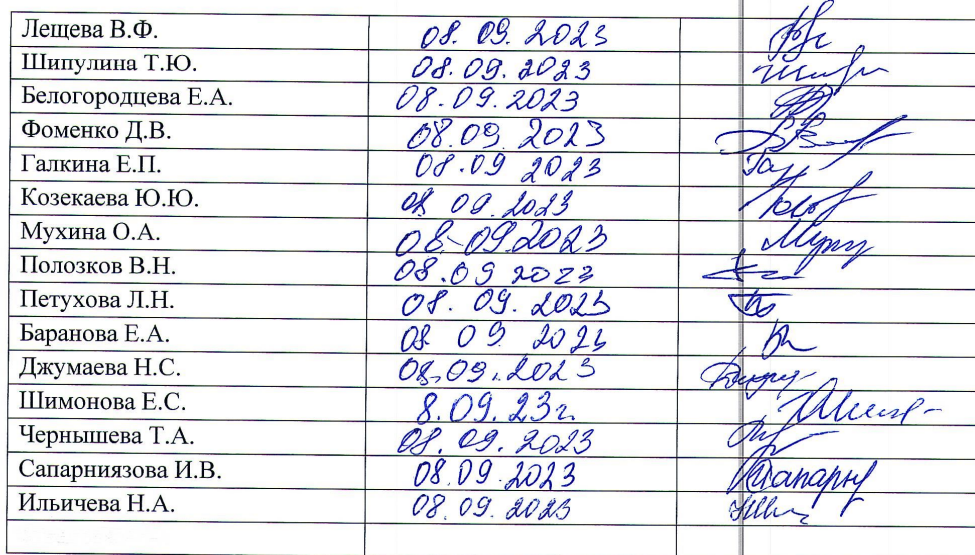 Лещева В.Ф. 08.09.2023
Шипулина Т.Ю. 08.09.2023
Белогородцева Е.А. 08.09.2023
Фоменко Д.В. 08.09.2023
Галкина Е.П. 08.09 2023
Козекаева Ю.Ю. 08 09.2023
Мухина О.А. 08-09.2023
Полозков В.Н. 08.09 2023
Петухова Л.Н. 08.09.2023
Баранова Е.А. 08 09 2023
Джумаева Н.С. 08.09.2023
Шимонова Е.С. 8.09.23г.
Чернышева Т.А. 08.09.2023
Сапарниязова И.В. 08.09.2023
Ильичева Н.А. 08.09.2023